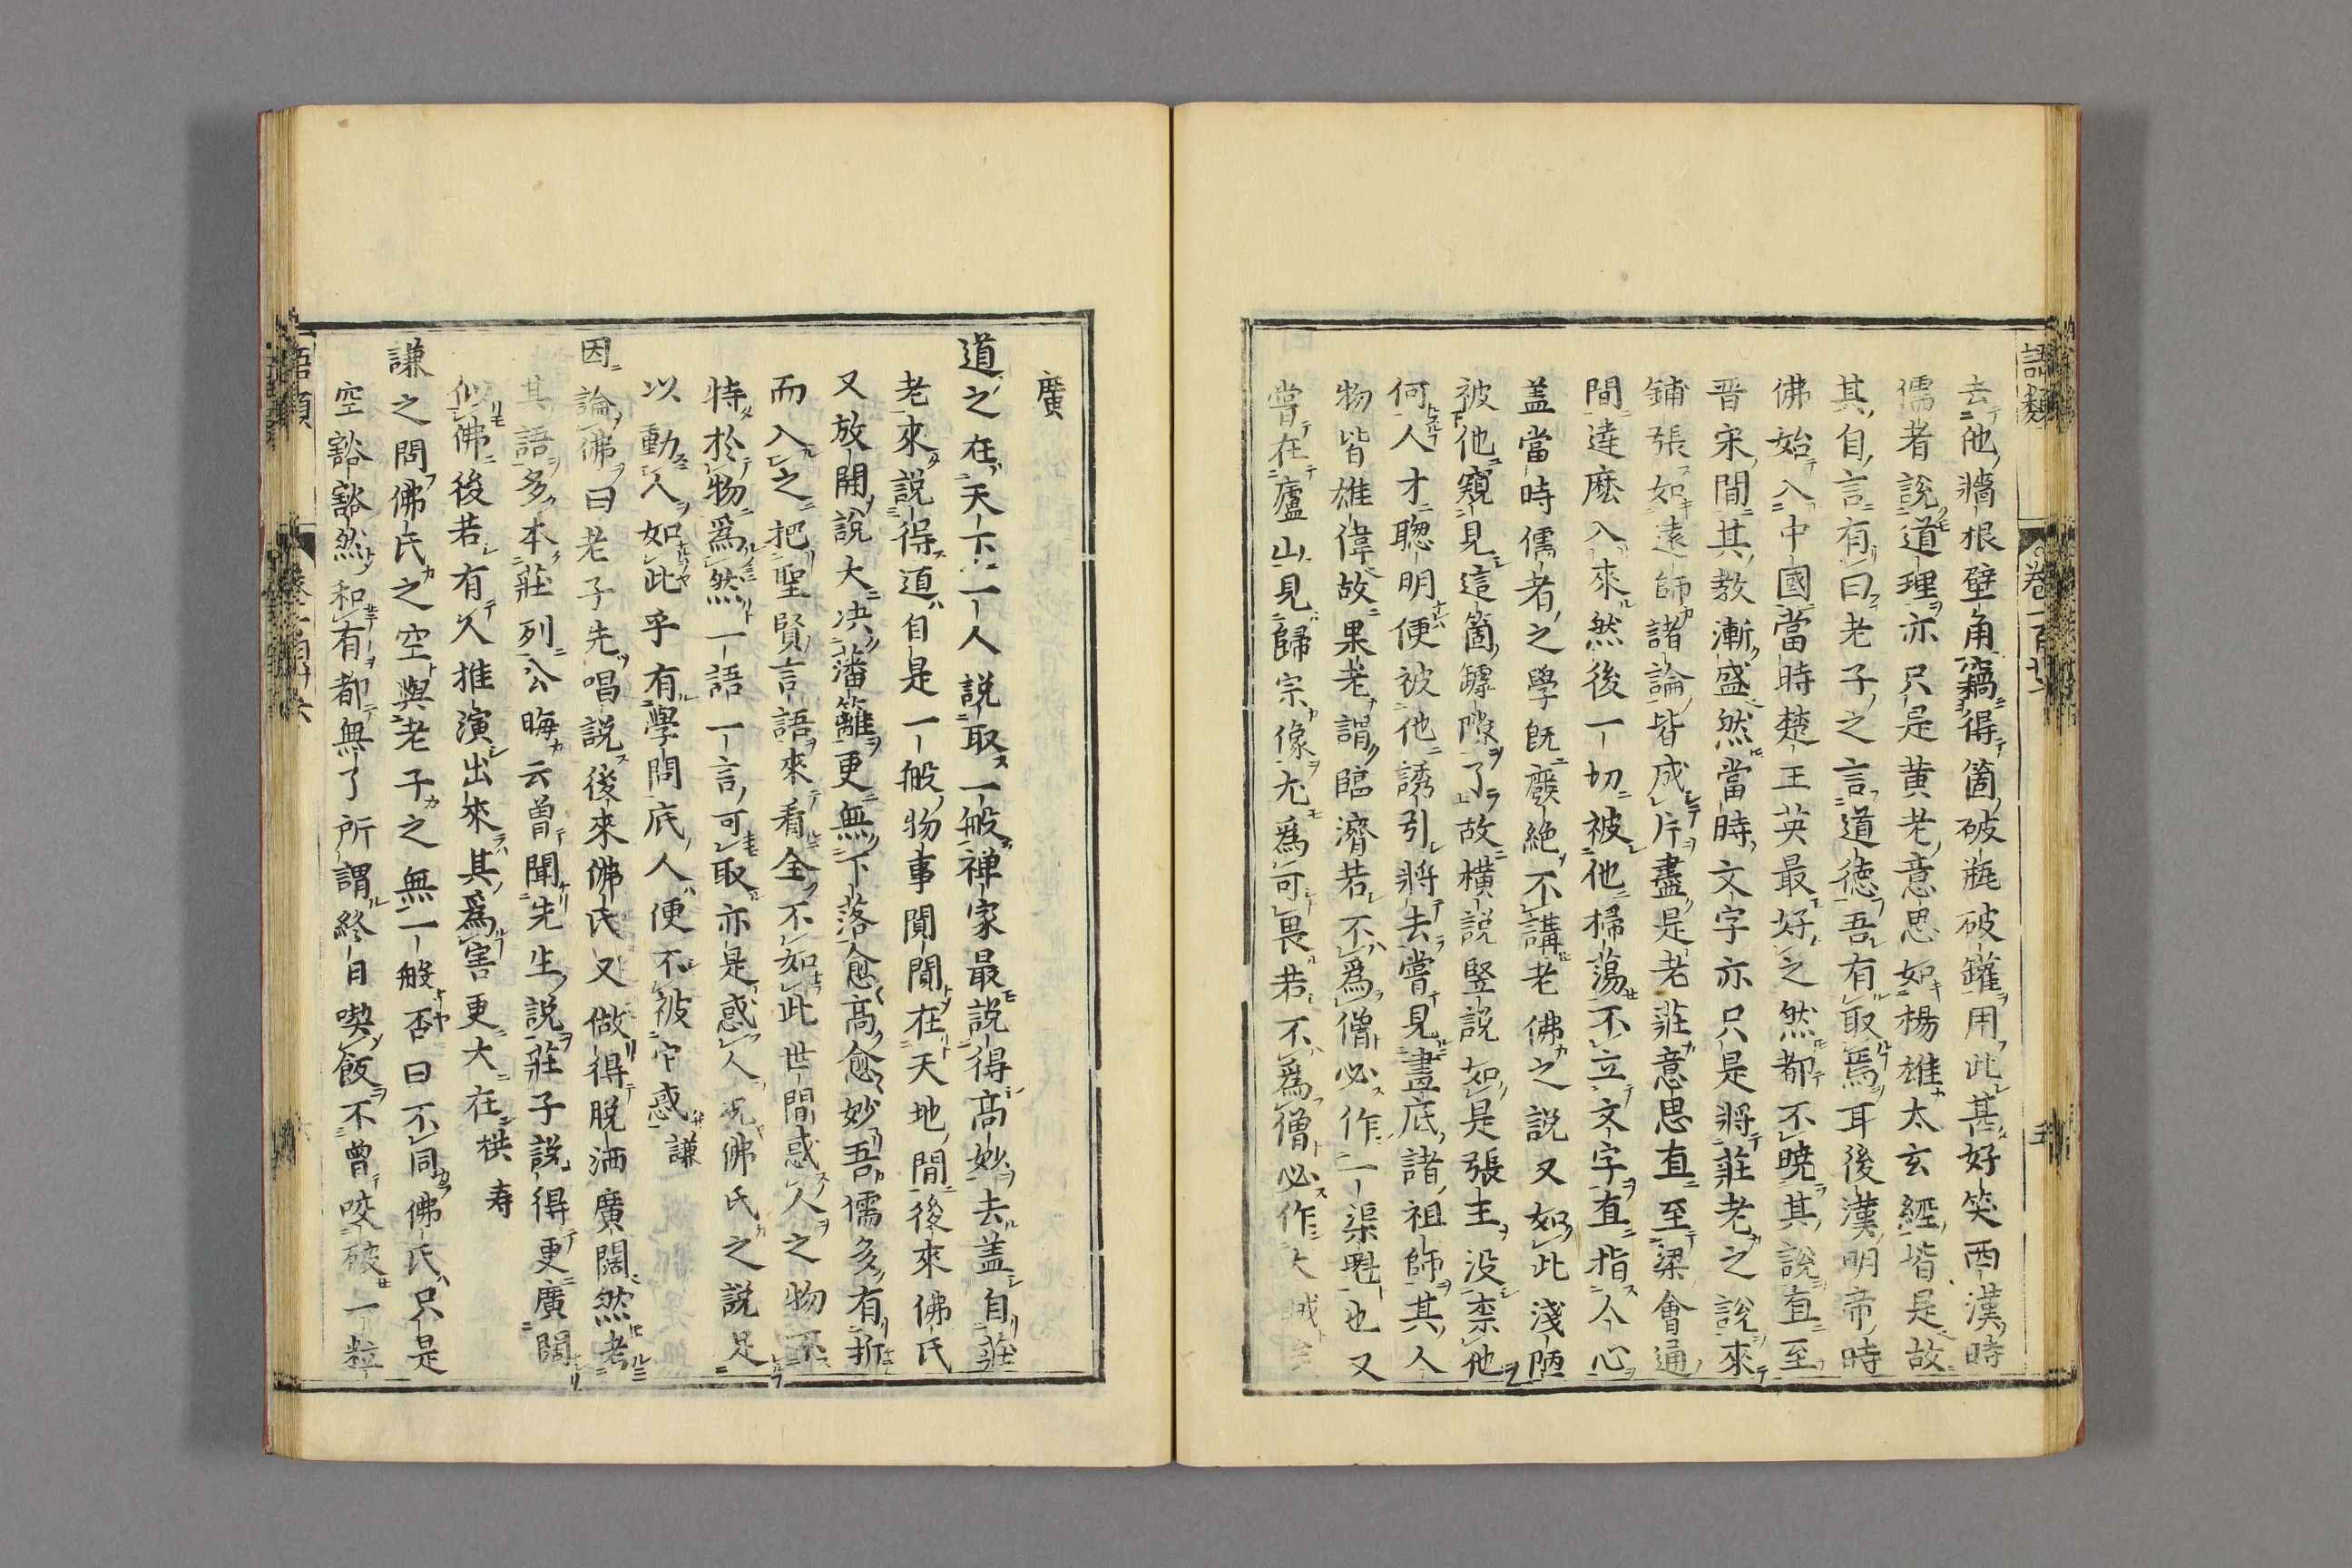 語類
卷一百廿六
五
去他墻根壁角竊得箇破瓶破罐用此甚好笑西漢時
儒者說道理亦只是黃老意思如楊雄太玄經皆是故
其自言有曰老子之言道德吾有取焉耳後漢明帝時
佛始入中國當時楚王英最好之然都不曉其說直至
晉宋間其教漸盛然當時文字亦只是將莊老之說來
鋪張如遠師諸論皆成片盡是老莊意思直至梁會通
間達麽入來然後一切被他掃蕩不立文字直指人心
盖當時儒者之學旣廢絶不講老佛之說又如此淺陋
被他窺見這箇罅隙了故橫說竪說如是張主没柰他
何人才聰明便被他誘引將去嘗見畫底諸祖師其人
物皆雄偉故杲老謂臨濟若不爲僧必作一渠魁也又
嘗在廬山見歸宗像尤爲可畏若不爲僧必作大賊矣
廣
道之在天下一人說取一般禅家最說得高妙去盖自莊
老來說得道自是一般物事閴閴在天地間後來佛氏
又放開說大决藩籬更無下落愈高愈妙吾儒多有折
而入之把聖賢言語來看全不如此世間惑人之物不
特於物爲然一語一言可取亦是惑人况佛氏之說足
以動人如此乎有學問底人便不被它惑謙
因論佛曰老子先唱說後來佛氏又做得脫洒廣闊然考
其語多本莊列公晦云曾聞先生說莊子說得更廣闊
似佛後若有人推演出來其爲害更大在拱寿
謙之問佛氏之空與老子之無一般否曰不同佛氏只是
空豁豁然和有都無了所謂終日喫飯不曾咬破一粒
語類